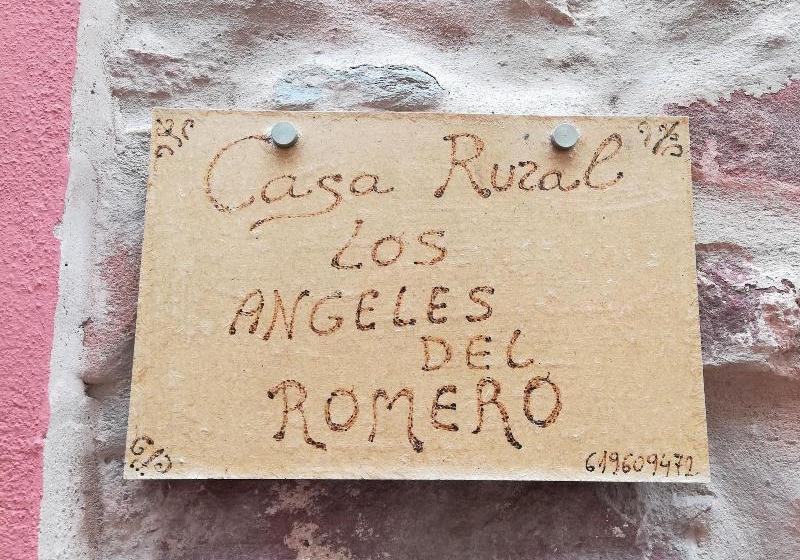 Casa Rural
LOS
ANGELES
DEL
ROMERO
619609472